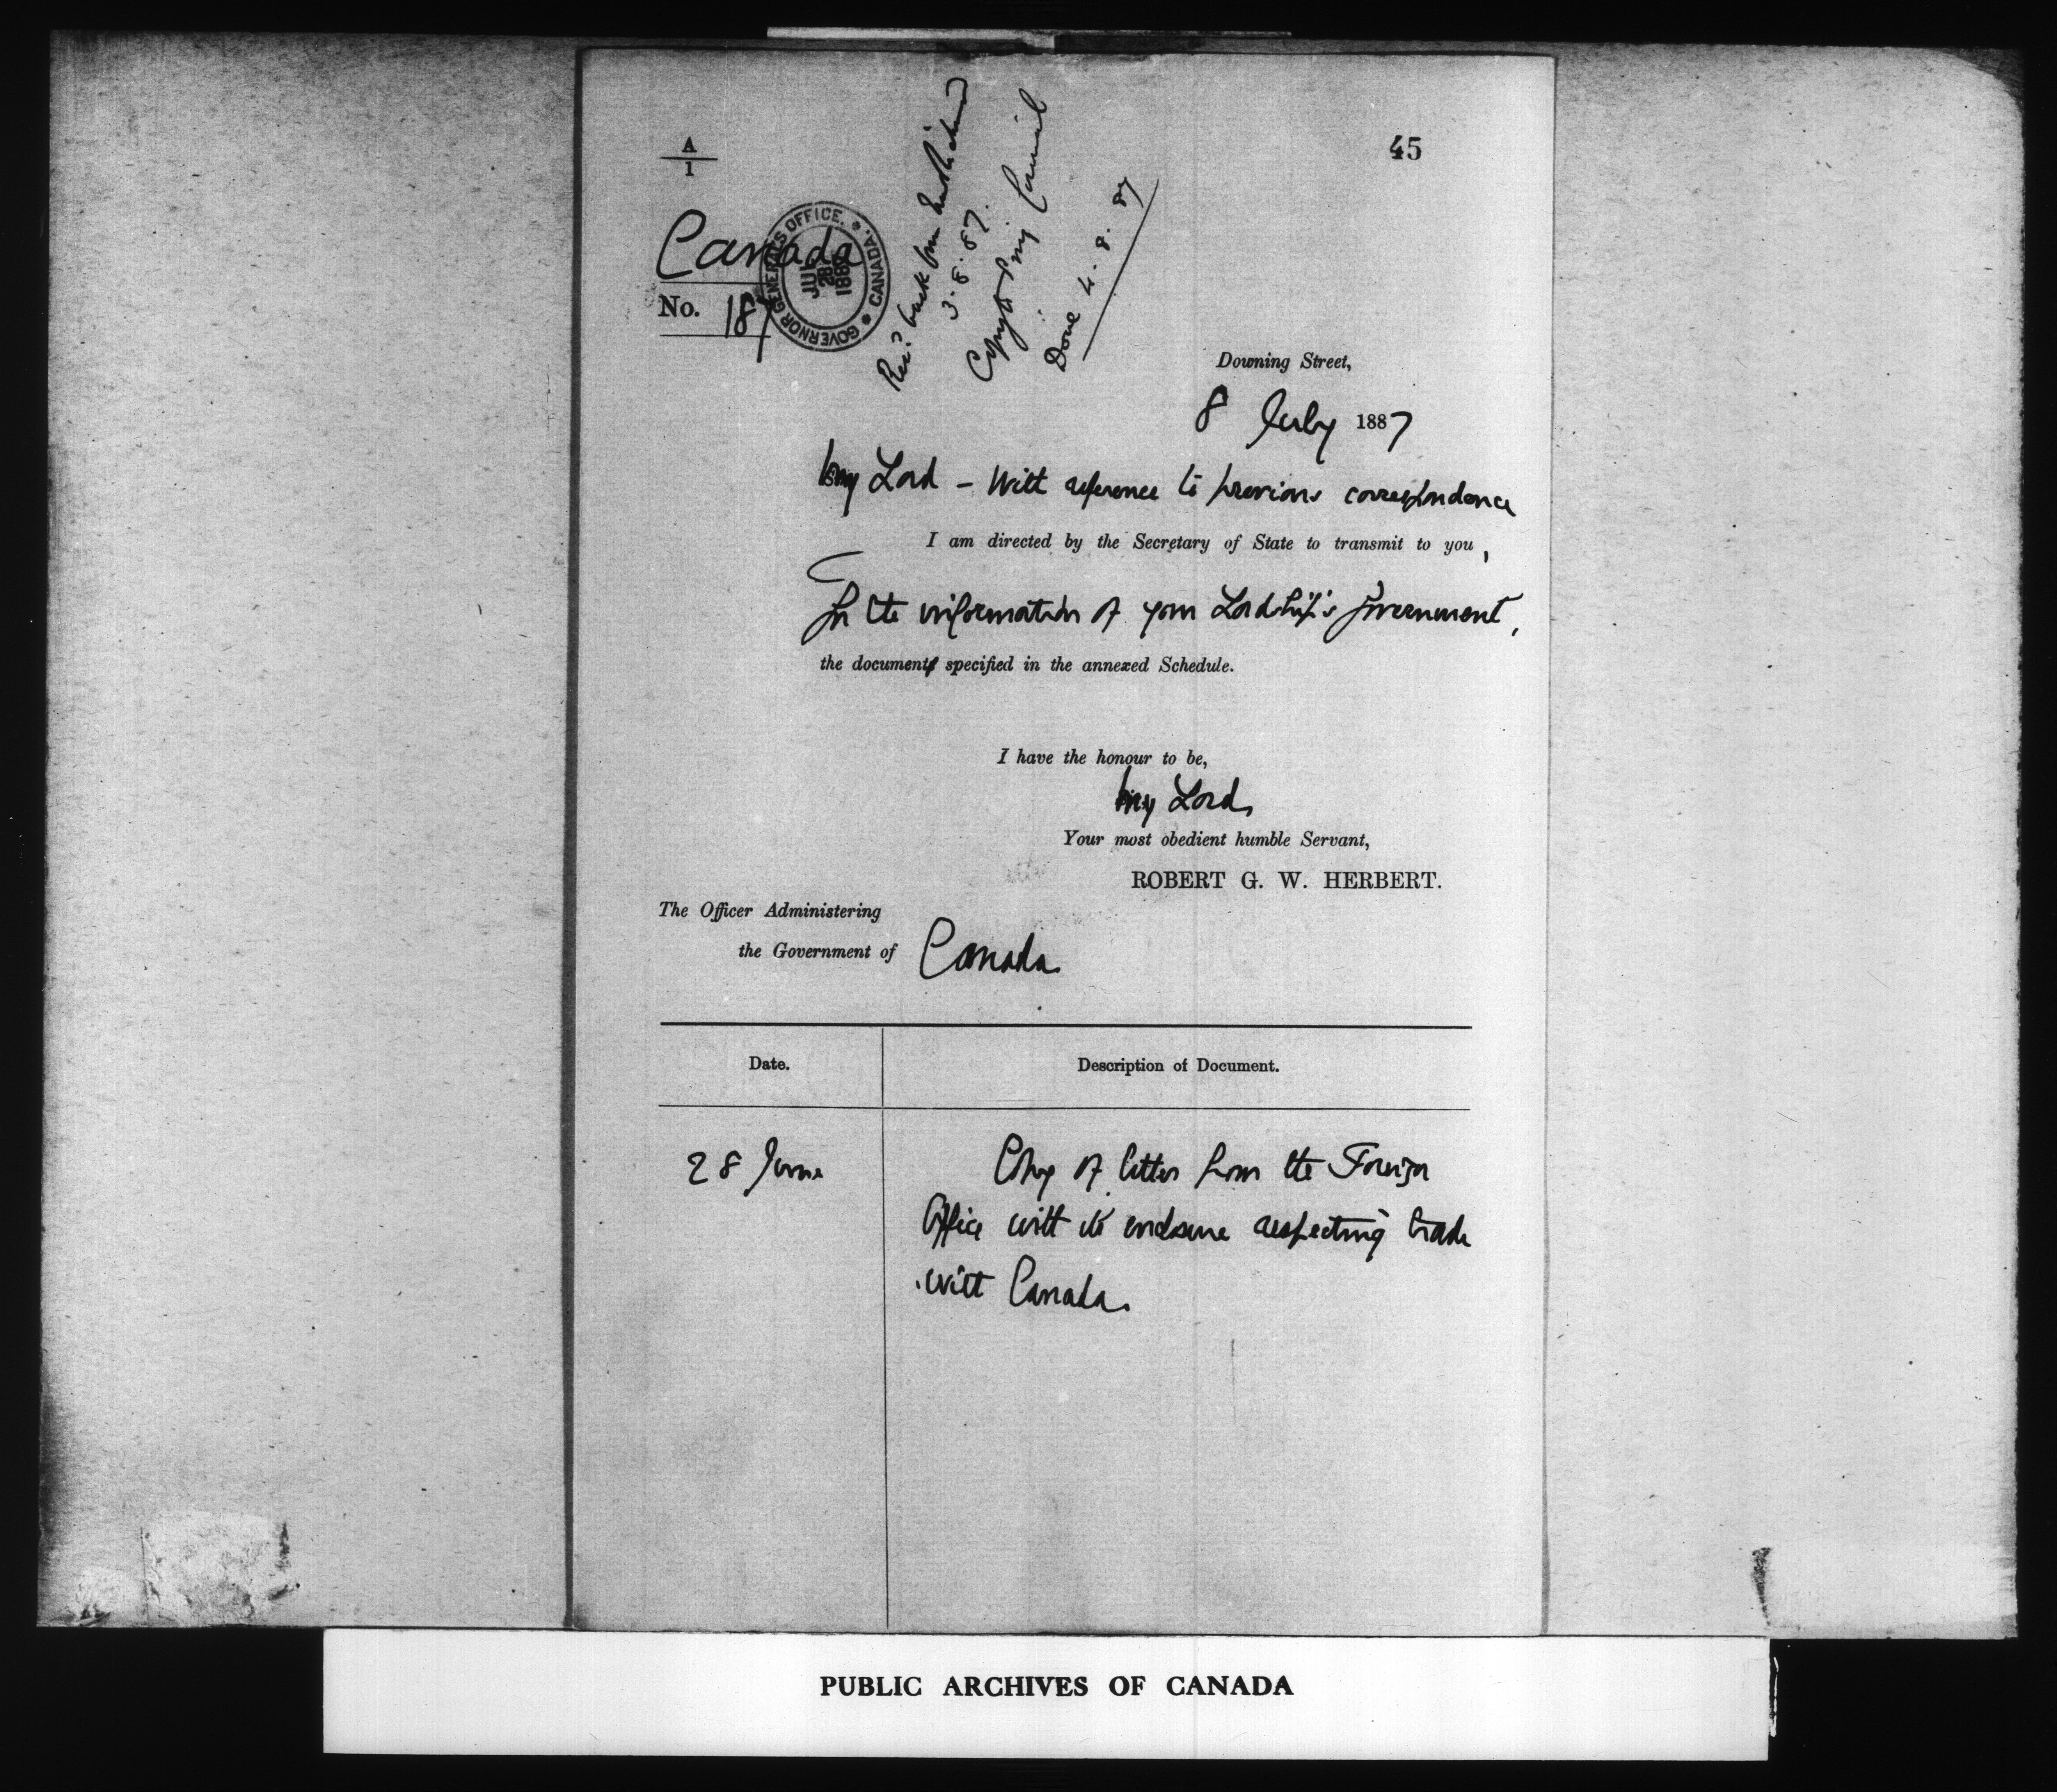 A
1
45
Canada
No. 187
GOVERNOR GENERAL'S OFFICE. * CANADA. *
JUL
28
1887
Recd back from
3.8.87.
Copy to Privy Council
Done 4.8.87
Downing Street,
8 July 1887
My Lord – With reference to previous correspondence
I am directed by the Secretary of State to transmit to you,
for the information of your Lordship's Government,
the document specified in the annexed Schedule.
I have the honour to be,
My Lord,
Your most obedient humble Servant,
ROBERT G. W. HERBERT.
The Officer Administering
the Government of Canada
Date.
Description of Document.
28 June
Copy of letter from the Foreign
Office with its enclosure respecting trade
with Canada.
PUBLIC ARCHIVES OF CANADA